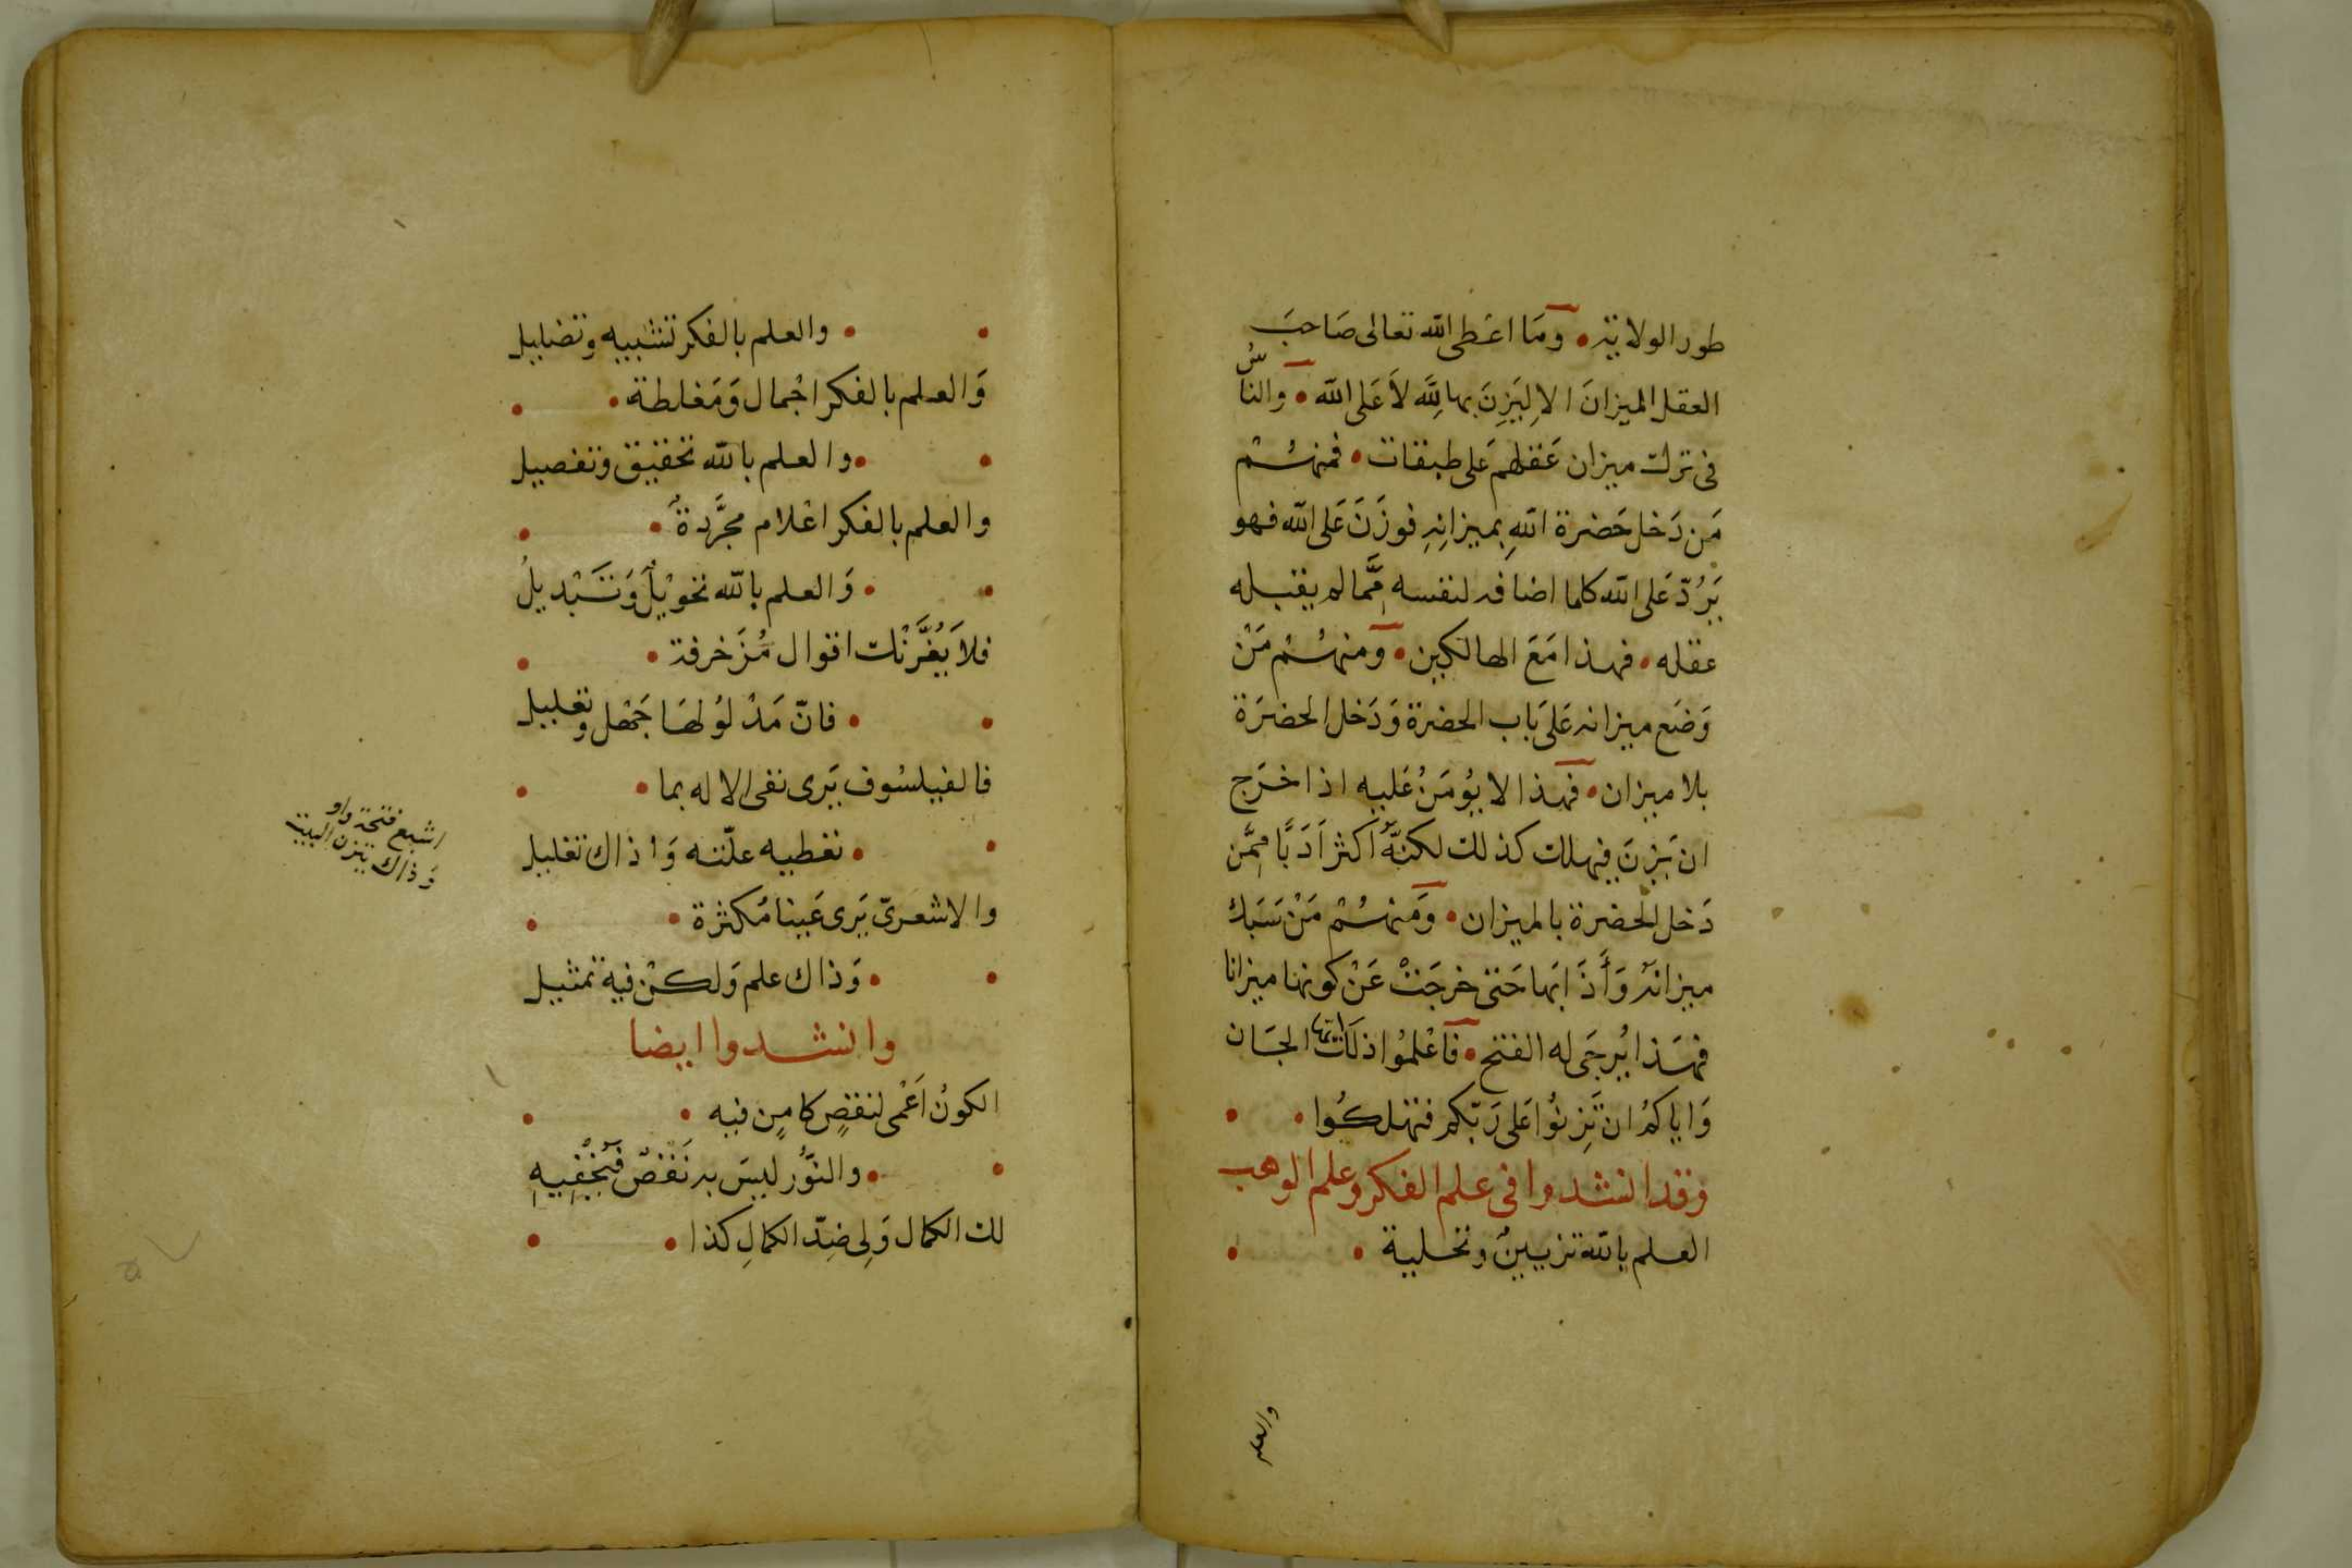 طور الولاية • ومَا اعطى الله تعالى صَاحبَ
العقل الميزانَ الا لِيَزِنَ بها لِلَّه لاَ عَلى الله • والناسُ
فى ترك ميزان عَقلهم على طبقات • فمنهُمْ
مَن دَخل حَضرة اللهِ بميزانِهِ فوزَنَ عَلى الله فهو
يَرُدّ عَلى الله كلما اضافه لنفسه مِمَّا لم يقبله
عقله • فهذا مَعَ الهالكين • وَمنهُمْ مَنْ
وَضَع ميزانه عَلى بَاب الحضرة وَدَخل الحضرَة
بلا ميزان • فهذا لا يؤمَنُ عَليه اذا خرَج
ان يَزِنَ فيهلك كذلك لكنَّهُ اكثر اَدَبًا مِمَّن
دَخل الحضرة بالميزان • وَمنهُمْ مَنْ سَبَك
ميزانهُ وَأَذَابَها حَتى خرجَتْ عَنْ كونها ميزانا
فهَذا يُرجَى له الفتح • فَاعْلمُوا ذلكَ ايها الجَان
وَاياكمُ ان تَزِنُوا عَلى رَبّكم فتهلكُوا • •
وقد انشدوا فى علم الفكر وعلم الوهب
العلم بالله تزيينٌ وتحلية • •
والعلم
• • والعلم بالفكر تشبيه وتضليل
وَالعلم بالفكر اجْمال وَمَغلطة • •
• • والعلم بالله تحقيق وتفصيل
والعلم بالفكر اعْلام مجرَّدةٌ • •
• • وَالعلم بالله تحويْلٌ وَتَبْديلُ
فلاَ يَغُرَّنْك اقوال مُزَخرفة • •
• • فانّ مَدْلوُلهَا جَهْل وتعليل
فالفيلسُوف يَرى نفى الاله بما • •
• • تعطيه علّته وَاذاك تعليل
والاشعرىّ يَرى عَينا مُكثرة • •
• • وَذاك علم وَلكنْ فيه تمثيل
اشبع فتحة واو
وَذاك يتزن البيت
وانشدوا ايضا
الكونُ اَعْمى لنقصٍ كامِنٍ فيه • •
• • والنُّور ليسَ به نَقصٌ فيُخْفِيهِ
لك الكمال وَلِى ضِدّ الكمالِ كذا • •